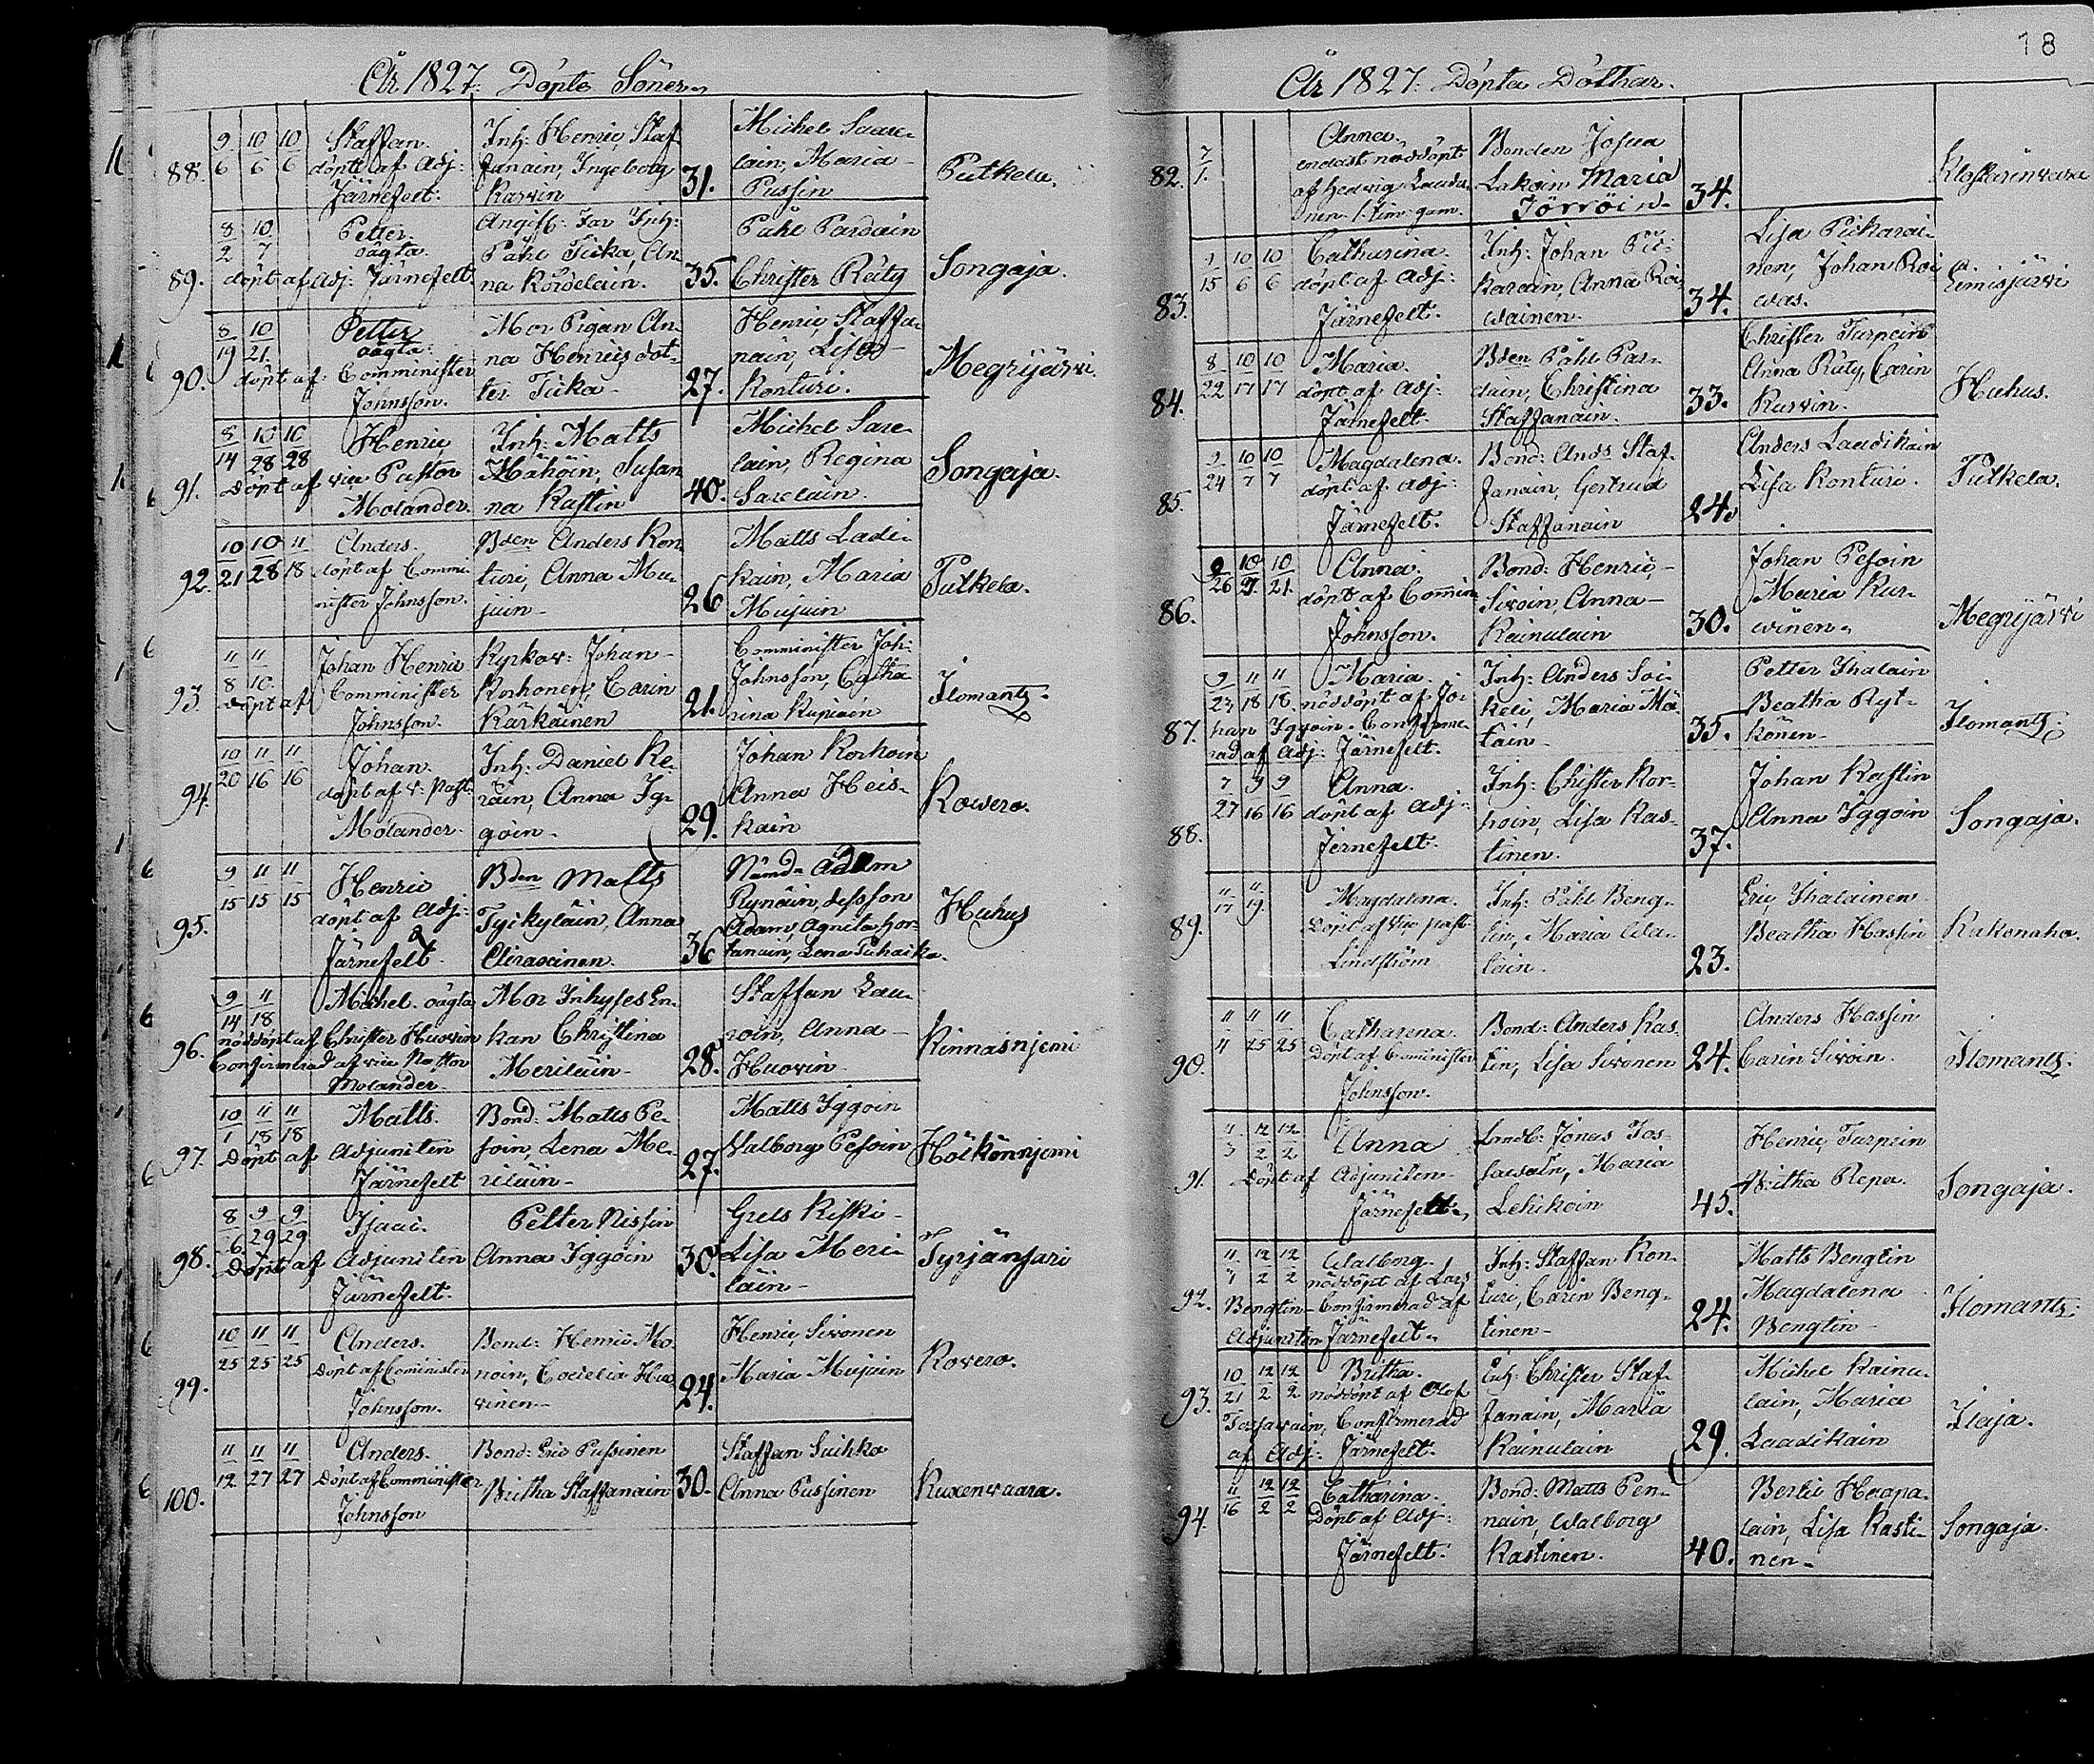 18
År 1827. Döpte Söner.
88. 9/6 10/6 10/6 Staffan. döpt af Adj: Järnefelt. Inh: Henric Staffanain, Ingeborg Karvin 31. Michel Saarelain, Maria Pussin Putkela.
89. 8/2 10/7 Petter. oägta. döpt af Adj: Järnefelt. Angifv. Far Inh: Påhl Ticka, Anna Kördelain. 35. Påhl Pardain Christer Räty Songaja.
90. 8/19 10/21. Petter oägta. döpt af Comminister Johnsson. Mor Pigan Anna Henricsdotter Ticka 27. Henric Staffanain, Lisa Konturi. Megrijärvi.
91. 8/14 10/28 10/28 Henric döpt af vice Pastor Molander. Inh: Matts Hähöin, Susanna Kastin 40. Michel Sarelain, Regina Sarelain. Songaja.
92. 10/21 10/28 11/18 Anders. döpt af Comminister Johnsson. Bden Anders Konturi, Anna Mujuin 26 Matts Ladikain, Maria Mujuin Putkela.
93. 11/8 11/10 Johan Henric döpt af Comminister Johnsson. Kyrkov: Johan Korhonen, Carin Kärkäinen 21. Comminister Joh: Johnsson, Catharina Kupiain Ilomants.
94. 10/20 11/16 11/16 Johan. döpt af v: Past: Molander. Inh: Daniel Keräin, Anna Iggöin. 29. Johan Korhoin Anna Heiskain Kowero.
95. 9/15 11/15 11/15 Henric döpt af Adj: Järnefelt. Bden Matts Tyikyläin, Anna Eliraxinen. 36 Nämd: Adam Rynäin, dessson Adam, Agneta Hortanain, Lena Puhaika. Huhus
96. 9/14 11/18 Michel. oägta nöddöpt af Christer Huovin Confirmerad af vice Pastor Molander Mor Inhyses Enkan Christina Meriläin 28. Staffan Lauroin, Anna Huovin Kinnasnjemi
97. 10/1 11/18 11/18 Matts. Döpt af Adjuncten Järnefelt Bond: Matts Pesoin, Lena Meriläin 27. Matts Iggoin Valborg Pesoin Höikönnjemi
98. 8/6. 9/29 9/29 Isaac. Döpt af Adjuncten Järnefelt. Petter Nissin Anna Iggöin 30. Grels Riski Lisa Meriläin Syrjänsari
99. 10/25 11/25 11/25 Anders. Döpt af Cominister Johnsson. Bond: Henric Monoin, Cordelia Huovinen 24. Henric Sivonen Maria Mujuin Kovero.
100. 11/12 11/27 11/27 Anders. Döpt af Comminister Johnsson Bond: Eric Pussinen Britha Staffanain 30. Staffan Suihka Anna Pussinen Kuxenvaara.
År 1827. Döpta Döttrar.
82. 7/1. Anna. endast nöddöpt af Hedvig Laudanen 1. tim: gam. Bonden Josua Lakoin Maria Törröin 34.
83. 9/15 10/6 10/6 Catharina. döpt af Adj: Järnefelt. Inh: Johan Pickarain, Anna Roivainen. 34. Lisa Pickarainen, Johan Roivas. Lemisjärvi
84. 8/22 10/17 10/17 Maria. döpt af Adj: Järnefelt. Bden Påhl Pardain, Christina Staffanain. 33. Christer Turpein Anna Räty, Carin Kurvin. Huhus.
85. 9/24 10/7 10/7 Magdalena. döpt af Adj: Järnefelt. Bond: Ands Staffanain, Gertrud Staffanain 24. Anders Laadikain Lisa Konturi. Putkela.
86. 9/26 10/21. 10/21. Anna. döpt af Commin: Johnsson. Bond: Henric Sivoin, Anna Kainulain 30. Johan Pesoin Maria Kurvinen. Megrijärvi
87. 9/23 11/18 11/18. Maria. nöddöpt af Johan Iggoin. Confirmerad af Adj: Järnefelt. Inh: Anders Soikeli, Maria Mätäin 35. Petter Ihalain Beatha Rytkönen Ilomants.
88. 7/27 9/16 9/16 Anna. döpt af Adj: Jernefelt. Inh: Christer Korhoin, Lisa Kastinen. 37. Johan Kastin Anna Iggoin Songaja.
89. 11/17 11/19. Magdalena. Döpt af Vice past: Lindström Inh: Påhl Bengtin, Maria Alalain. 23. Eric Ihalainen Beatha Hassin Kukonaho.
90. 11/4 11/25 11/25 Catharina. Döpt af Cominister Johnsson. Bond: Anders Kastin, Lisa Sivonen 24. Anders Hassin Carin Sivoin. Ilomants.
91. 11/3 12/2 12/2 Anna Döpt af Adjuncten Järnefelt. Landb: Jonas Tossavain, Maria Lehikoin 45. Henric Turpein Britha Repo. Songaja.
92. 11/7 12/2 12/2 Walborg. nöddöpt af Lars Bengtin Confirmerad af Adjuncten Järnefelt. Inh: Staffan Konturi, Carin Bengtinen 24. Matts Bengtin Magdalena Bengtin Ilomants.
93. 10/21 12/2 12/2 Britha. nöddöpt af Olof Tossavain, Confirmerad af Adj: Järnefelt. Inh: Christer Staffanain, Maria Kainulain 29. Michel Kainulain, Maria Laadikain Ilaja.
94. 11/16 12/2 12/2 Catharina. Döpt af Adj: Järnefelt. Bond: Matts Pennain, Walborg Kastinen. 40. Bertil Haapalain, Lisa Kastinen Songaja.